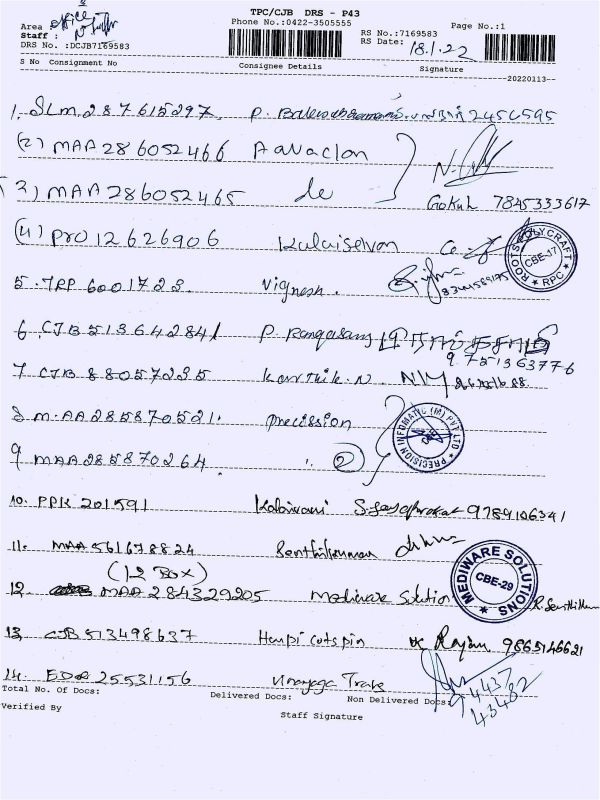 TPC/CJB DRS - P43
Phone No.:0422-3505555
Area : office
Staff :
DRS No. :DCJB7169583
RS No.:7169583
RS Date: 18.1.22
Page No.:1
S No Consignment No Consignee Details Signature
20220113--
1. SLM 287615297 P.
(2) MAA 286052466
3) MAA 286052465 do Gokul 7845333617
(4) PRO 12626906 Kalaiselvan
ROOTS POLYCRAFT CBE-17 RPC
5. TRP 6001723 Vignesh.
6. CJB 513642841 P. Rangasamy
9751363776
7. CJB 88057235 Karthik.N
8. MAA 285870521. precission
PRECISION INFOMATIC (M) PVT LTD
9. MAA 285870264 (2)
10. PPK 201591 Kalaivani 9789106341
11. MAA 561678824 Senthilkumar
(12 Box)
12. MAA 284329205 Mediware Solution
MEDIWARE SOLUTIONS CBE-29
13. CJB 513498637 Rajan 9865146621
14. EDR 25531156 Vinayaga Trans
4437
43482
Total No. Of Docs: Delivered Docs: Non Delivered Docs:
Verified By Staff Signature